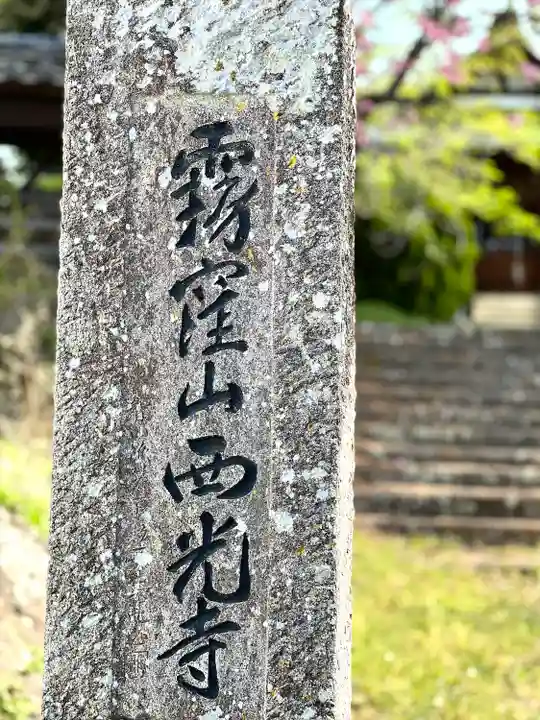 霧窪山西光寺